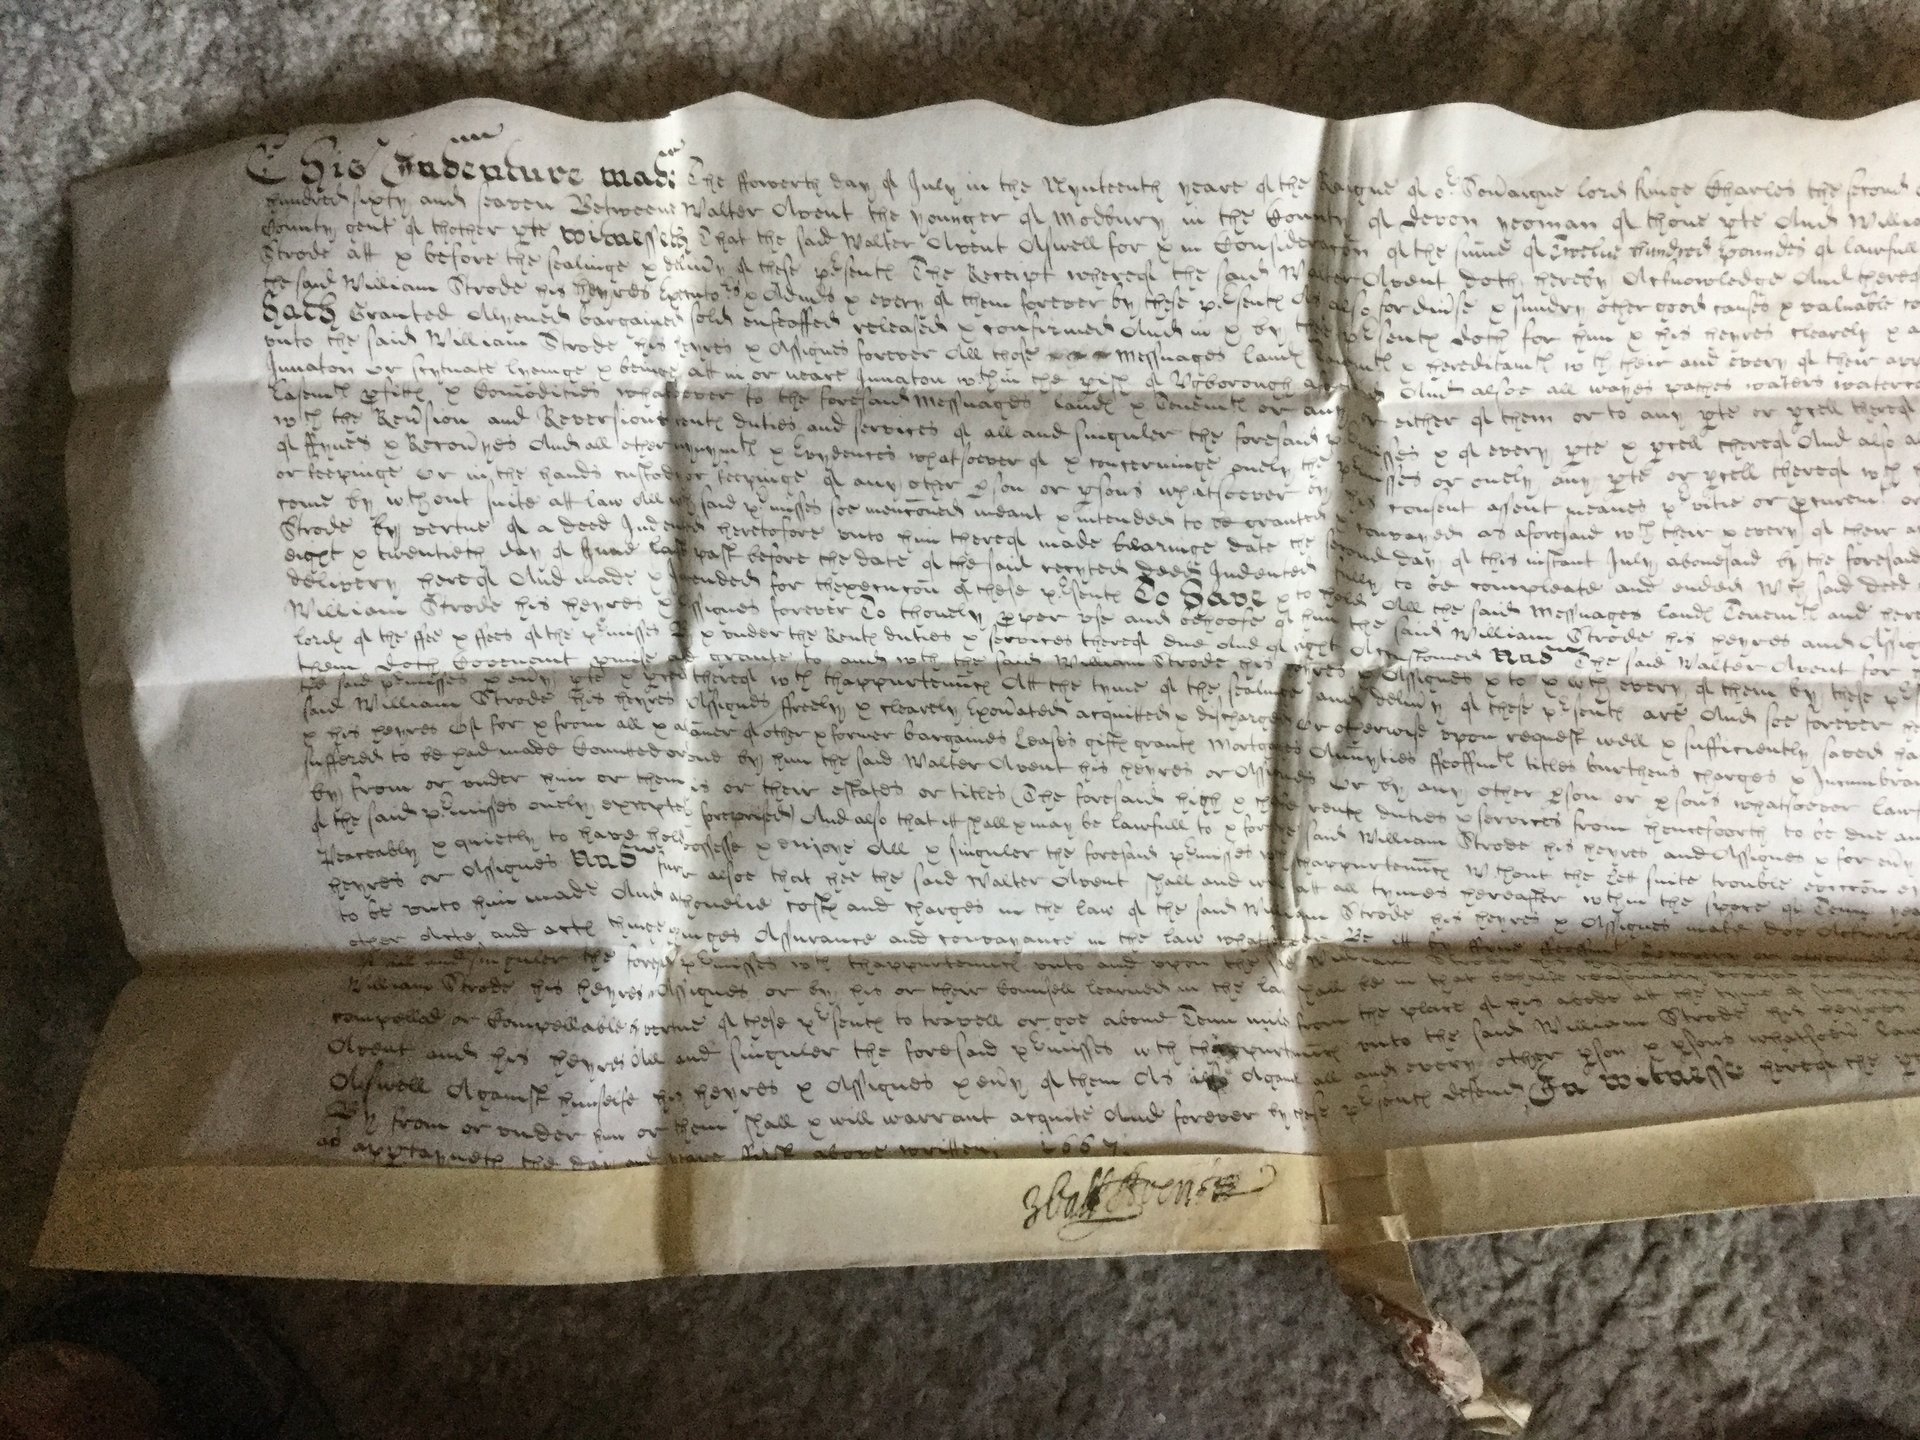 This Indenture made The ffowerth day of July in the Nynteenth yeare of the Raigne of or Sovraigne lord Kinge Charles the second
hundred sixty and seaven Betweene Walter Avent the younger of Modbury in the County of Devon yeoman of thone pte And Willia
County gent of thother pte Witnesseth That the said Walter Avent Aswell for & in Consideracon of the sume of Twelve hundred poundes of lawfull
Strode att & before the sealinge & delivry of these psents The Receipt whereof the said Walter Avent doth hereby Acknowledge And thereof
the said William Strode his heyres Executors & Admrs & every of them forever by these psents As also for divrse & sundry other good causes & valuable co
Hath Granted Alyened bargained sold enfeoffed released & confirmed And in & by these psents Doth for him & his heyres clearely & a
unto the said William Strode his heyres & Assignes forever All those Messuages lands Tenemts & hereditamts wth their and every of their app
Innaton or scytuate lyeinge & beinge att in or neare Innaton wthin the pish of Ugborough And alsoe all wayes pathes waters waterco
Easemts pfitts & Comodities whatsoever to the foresaid Messuages lands & Tenemts or any or either of them or to any pte or pcell thereof
wth the Revrsion and Reversions rents duties and services of all and singuler the foresaid pmisses & of every pte & pcell thereof And also a
of ffynes & Recovryes And all other mynymts & Evydences whatsoever of & concerninge onely the pmisses or onely any pte or pcell thereof wth
or keepinge Or in the hands custody or keepinge of any other pson or psons whatsoever by his consent assent meanes pvitie or pcuremt or
come by wthout suite att law All wch said pmisses soe menconed meant & intended to be granted & conveyed as aforesaid wth their & every of their a
Strode by vertue of a deed Indented heretofore unto him thereof made bearinge date the second day of this instant July abovesaid by the foresaid
eight & twentieth day of June last past before the date of the said recyted deed Indented fully to be compleate and ended Wch said deed
delivery hereof And made & intended for thexecucon of these psents To Have & to hold All the said Messuages lands Tenemts and here
William Strode his heyres & Assignes forever To thonely pper use and behoofe of him the said William Strode his heyres and Assig
lords of the ffee & ffees of the pmisses By & under the Rents duties & services thereof due And of right Accustomed And The said Walter Avent for
them doth Covenant pmise and grante to and wth the said William Strode his heyres & Assignes & to & wth every of them by these ps
the said pmisses & evry pte & pcell thereof wth thappurtennces Att the tyme of the sealinge and delivry of these psents are And soe forever he
said William Strode his heyres & Assignes ffreely & clearely Exonerated acquitted & discharged Or otherwise upon request well & sufficiently saved ha
& his heyres Of for & from all & all manner of other & former bargaines Leases gifts grants Mortgages Annuyties ffeoffmts titles burthens charges & Incumbran
suffered to be had made Comitted or done by him the said Walter Avent his heyres or Assignes Or by any other pson or psons whatsoever law
by from or under him or them his or their estates or titles (The foresaid high & cheife rents duties & services from henceforth to be due an
of the said pmisses onely excepted & foreprised) And also that itt shall & may be lawfull to & for the said William Strode his heyres and Assignes & for evry
Peaceably & quietly to have hold possesse & enjoye All & singuler the foresaid pmisses wth thappurtennces Wthout the lett suite trouble eviccon
heyres or Assignes And furr alsoe that hee the said Walter Avent shall and will att all tymes hereafter wthin the space of Tenn yea
to be unto him made And at thonelie costs and charges in the law of the said William Strode his heyres & Assignes make doe Acknowle
other Acte and acts thinge thinges Assurance and conveyance in the law whatsoever Be itt by ffyne
all and singuler the foresaid pmisses wth thappurtennces unto and upon the said William Strode his
William Strode his heyres & Assignes or by his or their Counsell learned in the law shall be in that behalfe reasonably
compelled or Compellable by vertue of these psents to travell or goe above Tenn myles from the place of his abode at the tyme of such
Avent and his heyres All and singuler the foresaid pmisses wth thappurtennces unto the said William Strode his heyres
Aswell Against himselfe his heyres & Assignes & evry of them As also Against all and every other pson & psons whatsoevr law
By from or under him or them shall & will warrant acquite And forever by these psents defend In Witnesse hereof the p
as appertayneth the day and yeare first above written 1667
Walt Avent